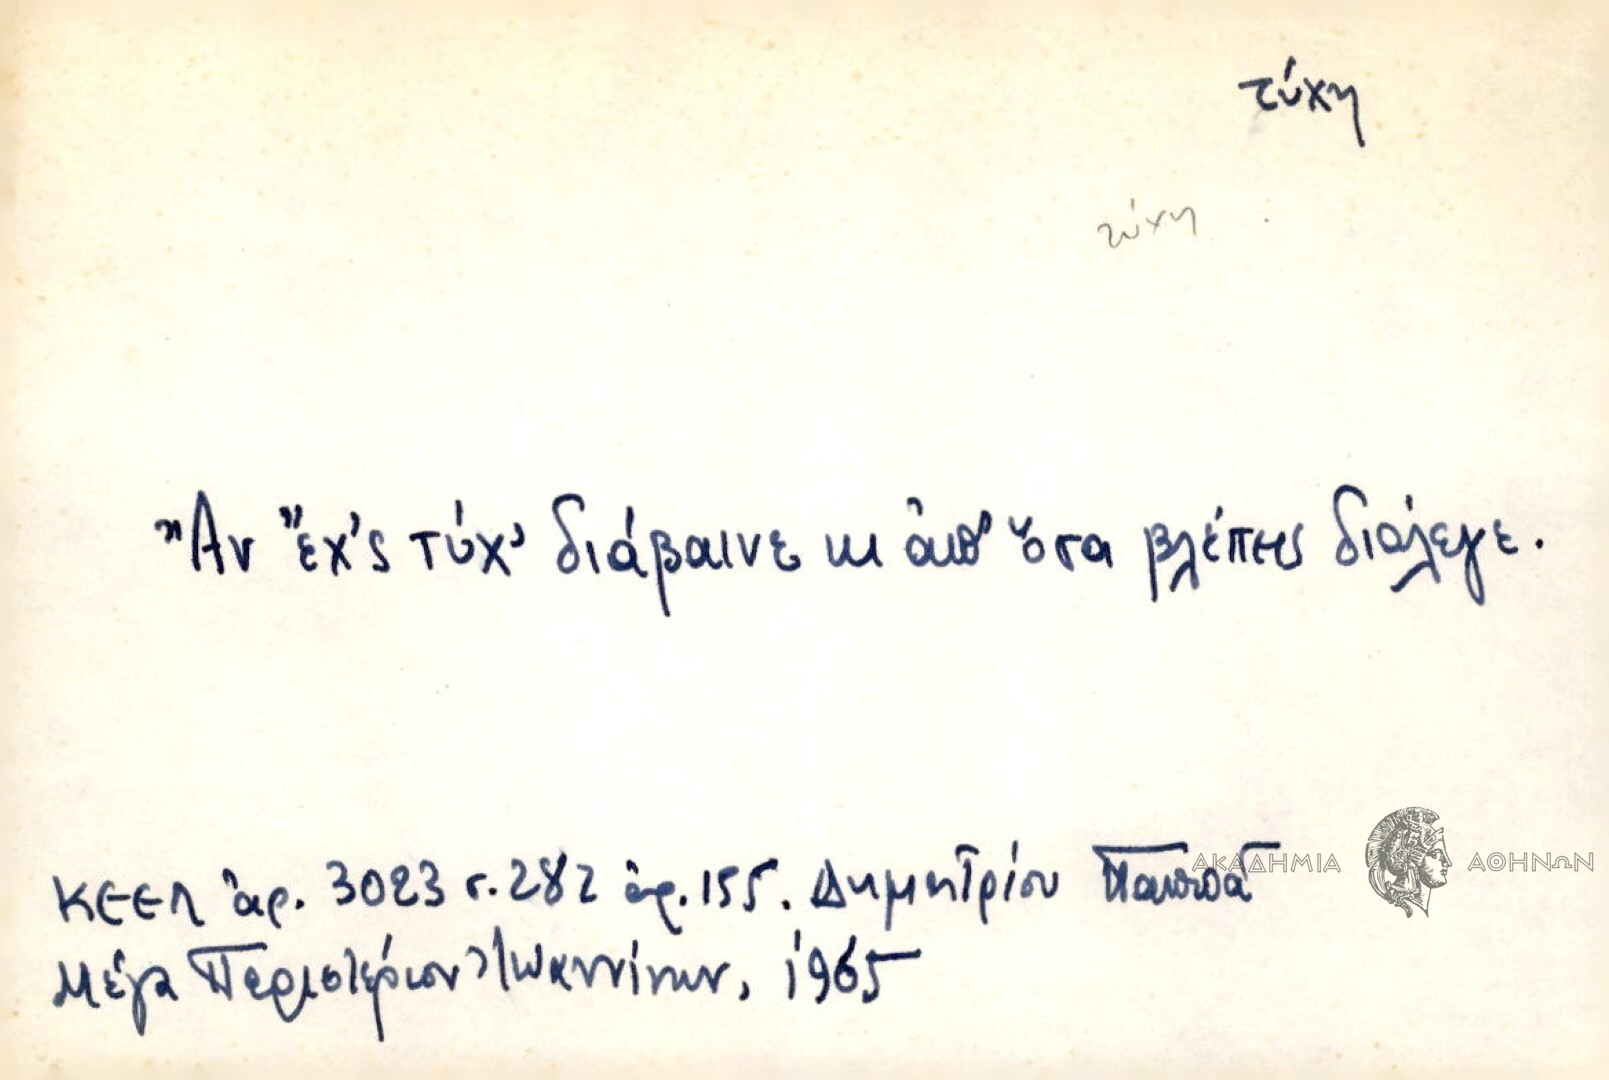 τύχη
τύχη
Ἂν ἔχ'ς τύχ' διάβαινε κι ἀπ' ὅσα βλέπεις διάλεγε.
ΚΕΕΛ ἀρ. 3023 σ. 282 ἀρ. 155. Δημητρίου Παππᾶ
Μέγα Περιστέριον Ἰωαννίνων, 1965
ΑΚΑΔΗΜΙΑ ΑΘΗΝΩΝ